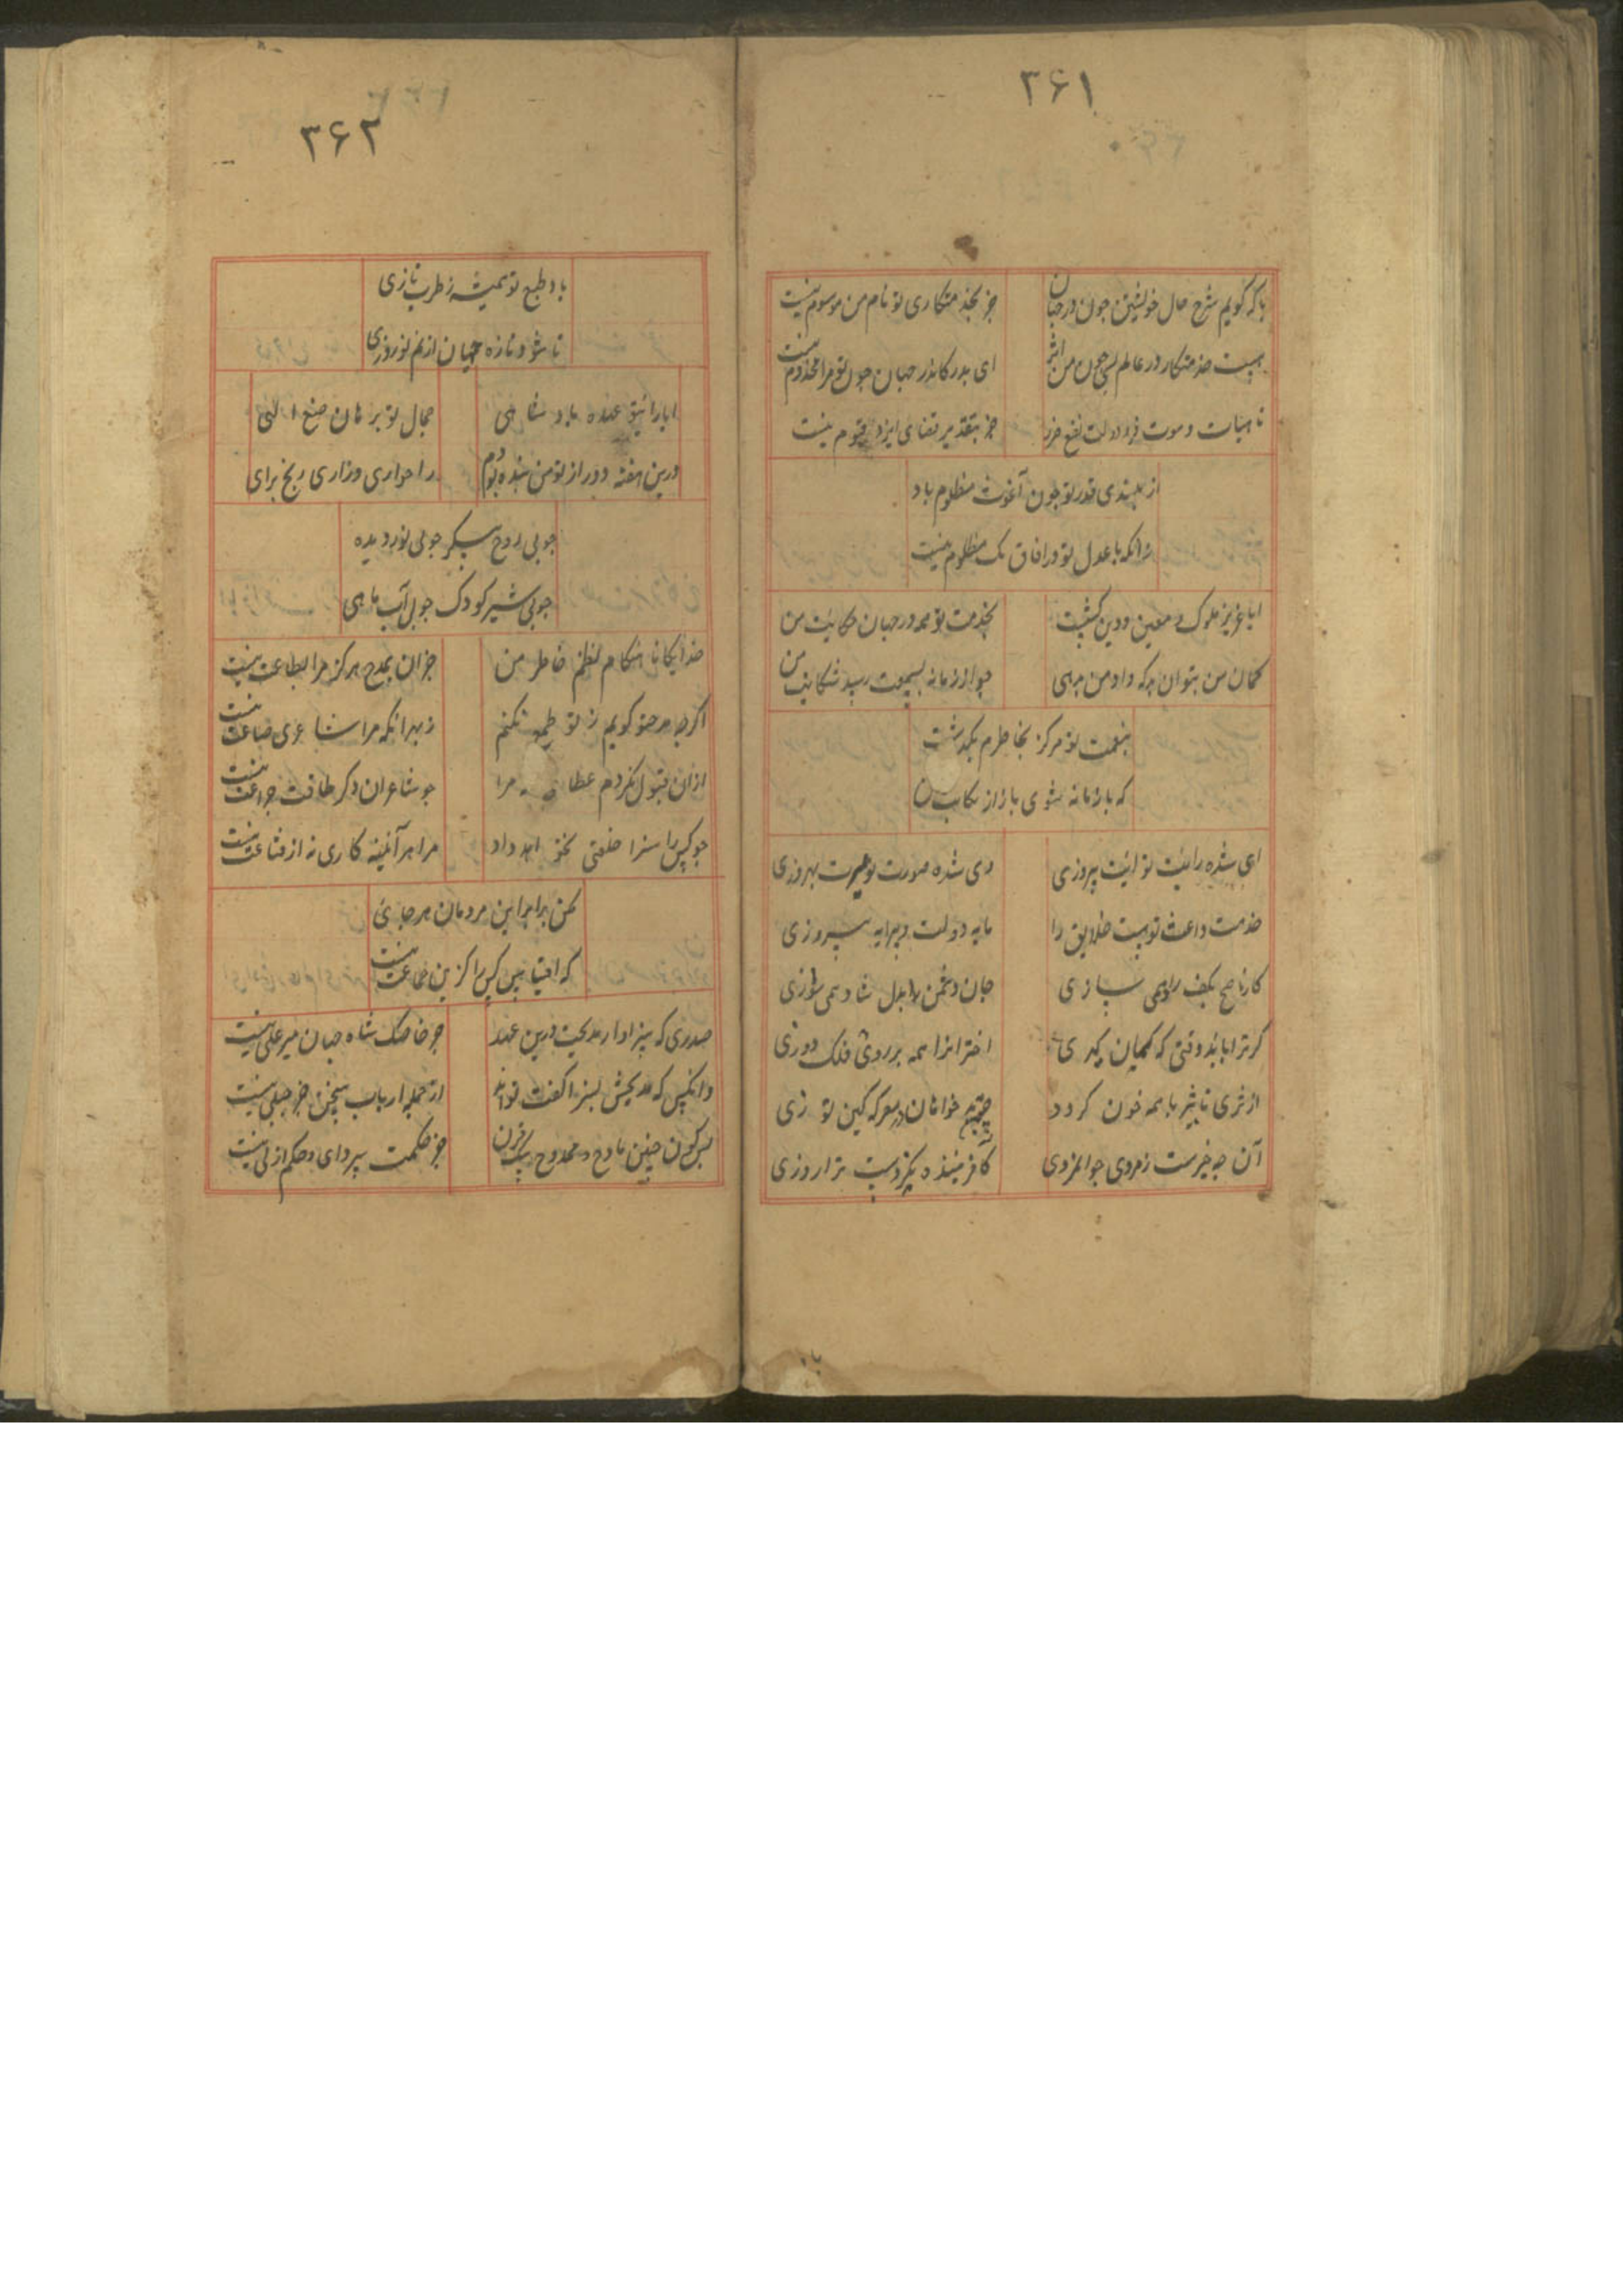 ۳۶۱
با که گویم شرح حال خویشتن چون در جهان
جز بخدمتکاری تو نام من موسوم نیست
هست خدمتکار در عالم بسی چون من
ای بدر کاندر جهان چون تو مرا مخدوم نیست
تا حیات و موت و دولت نفع ضر
جز بتقدیر قضای ایزد قیوم نیست
از بلندی قدر تو چون مظلوم باد
زانکه با عدل تو در افاق یک مظلوم نیست
ایا عزیز ملوک و معین و دین
بخدمت تو در جهان حکایت من
کمان من بتوان چه که داد من بدهی
چو از زمانه بسمعت رسد شکایت من
بنعمت تو هرکز بخاطرم نکذشت
که با زمانه شوی یار از نکایت من
ای شده رایت تو آیت پیروزی
وی شده صورت تو بهروزی
خدمت تو هست خلایق را
مایه دولت و پیرایه پیروزی
کار ناصح بکف راد همی سازی
جان دشمن بدل شاد همی سوزی
کر ترا باید وقتی که کمان کیری
اخترانرا همه بر روی فلک دوزی
از ثری تا بثریا همه خون کردد
در معرکه کین توزی
آن چه خیرست ز مردی جوانمردی
کافریننده نکردست ترا روزی
۳۶۲
باد طبع تو همیشه ز طرب تازی
تا شود تازه جهان از نم نوروزی
ایا رایت عمده پادشاهی
جمال تو برهان صنع الهی
درین هفته دور از تو من بنده بودم
را خواری و زاری رنج برای
چو بی روح پیکر چو بی نور دیده
چو بی شیر کودک چو بی آب ماهی
خدایکانا هنکام نظم خاطر من
جز ان بمدح هرکز مرا بطاعت نیست
اکرچه مدح تو کویم ز تو طمع نکنم
ز بهر انکه مرا شاعری صناعت نیست
ازان قبول نکردم عطا مرا
چو شاعران دکر طاقت نیست
چو کس را سزا خلعتی نخواهد داد
مرا هر آینه کاری به از قناعت نیست
مکن برابر این مردمان هر جائی
که اقتباس کس را کزین جماعت نیست
صدری که سزاوار مدیحست درین عهد
جز خاصک شاه جهان میر علی نیست
وانکس که مدیحش بسزا کفت تواند
از جمله ارباب سخن جز جبلی نیست
پس کردن چنین مادح و ممدوح بیک قرن
جز حکمت و حکم ازلی نیست